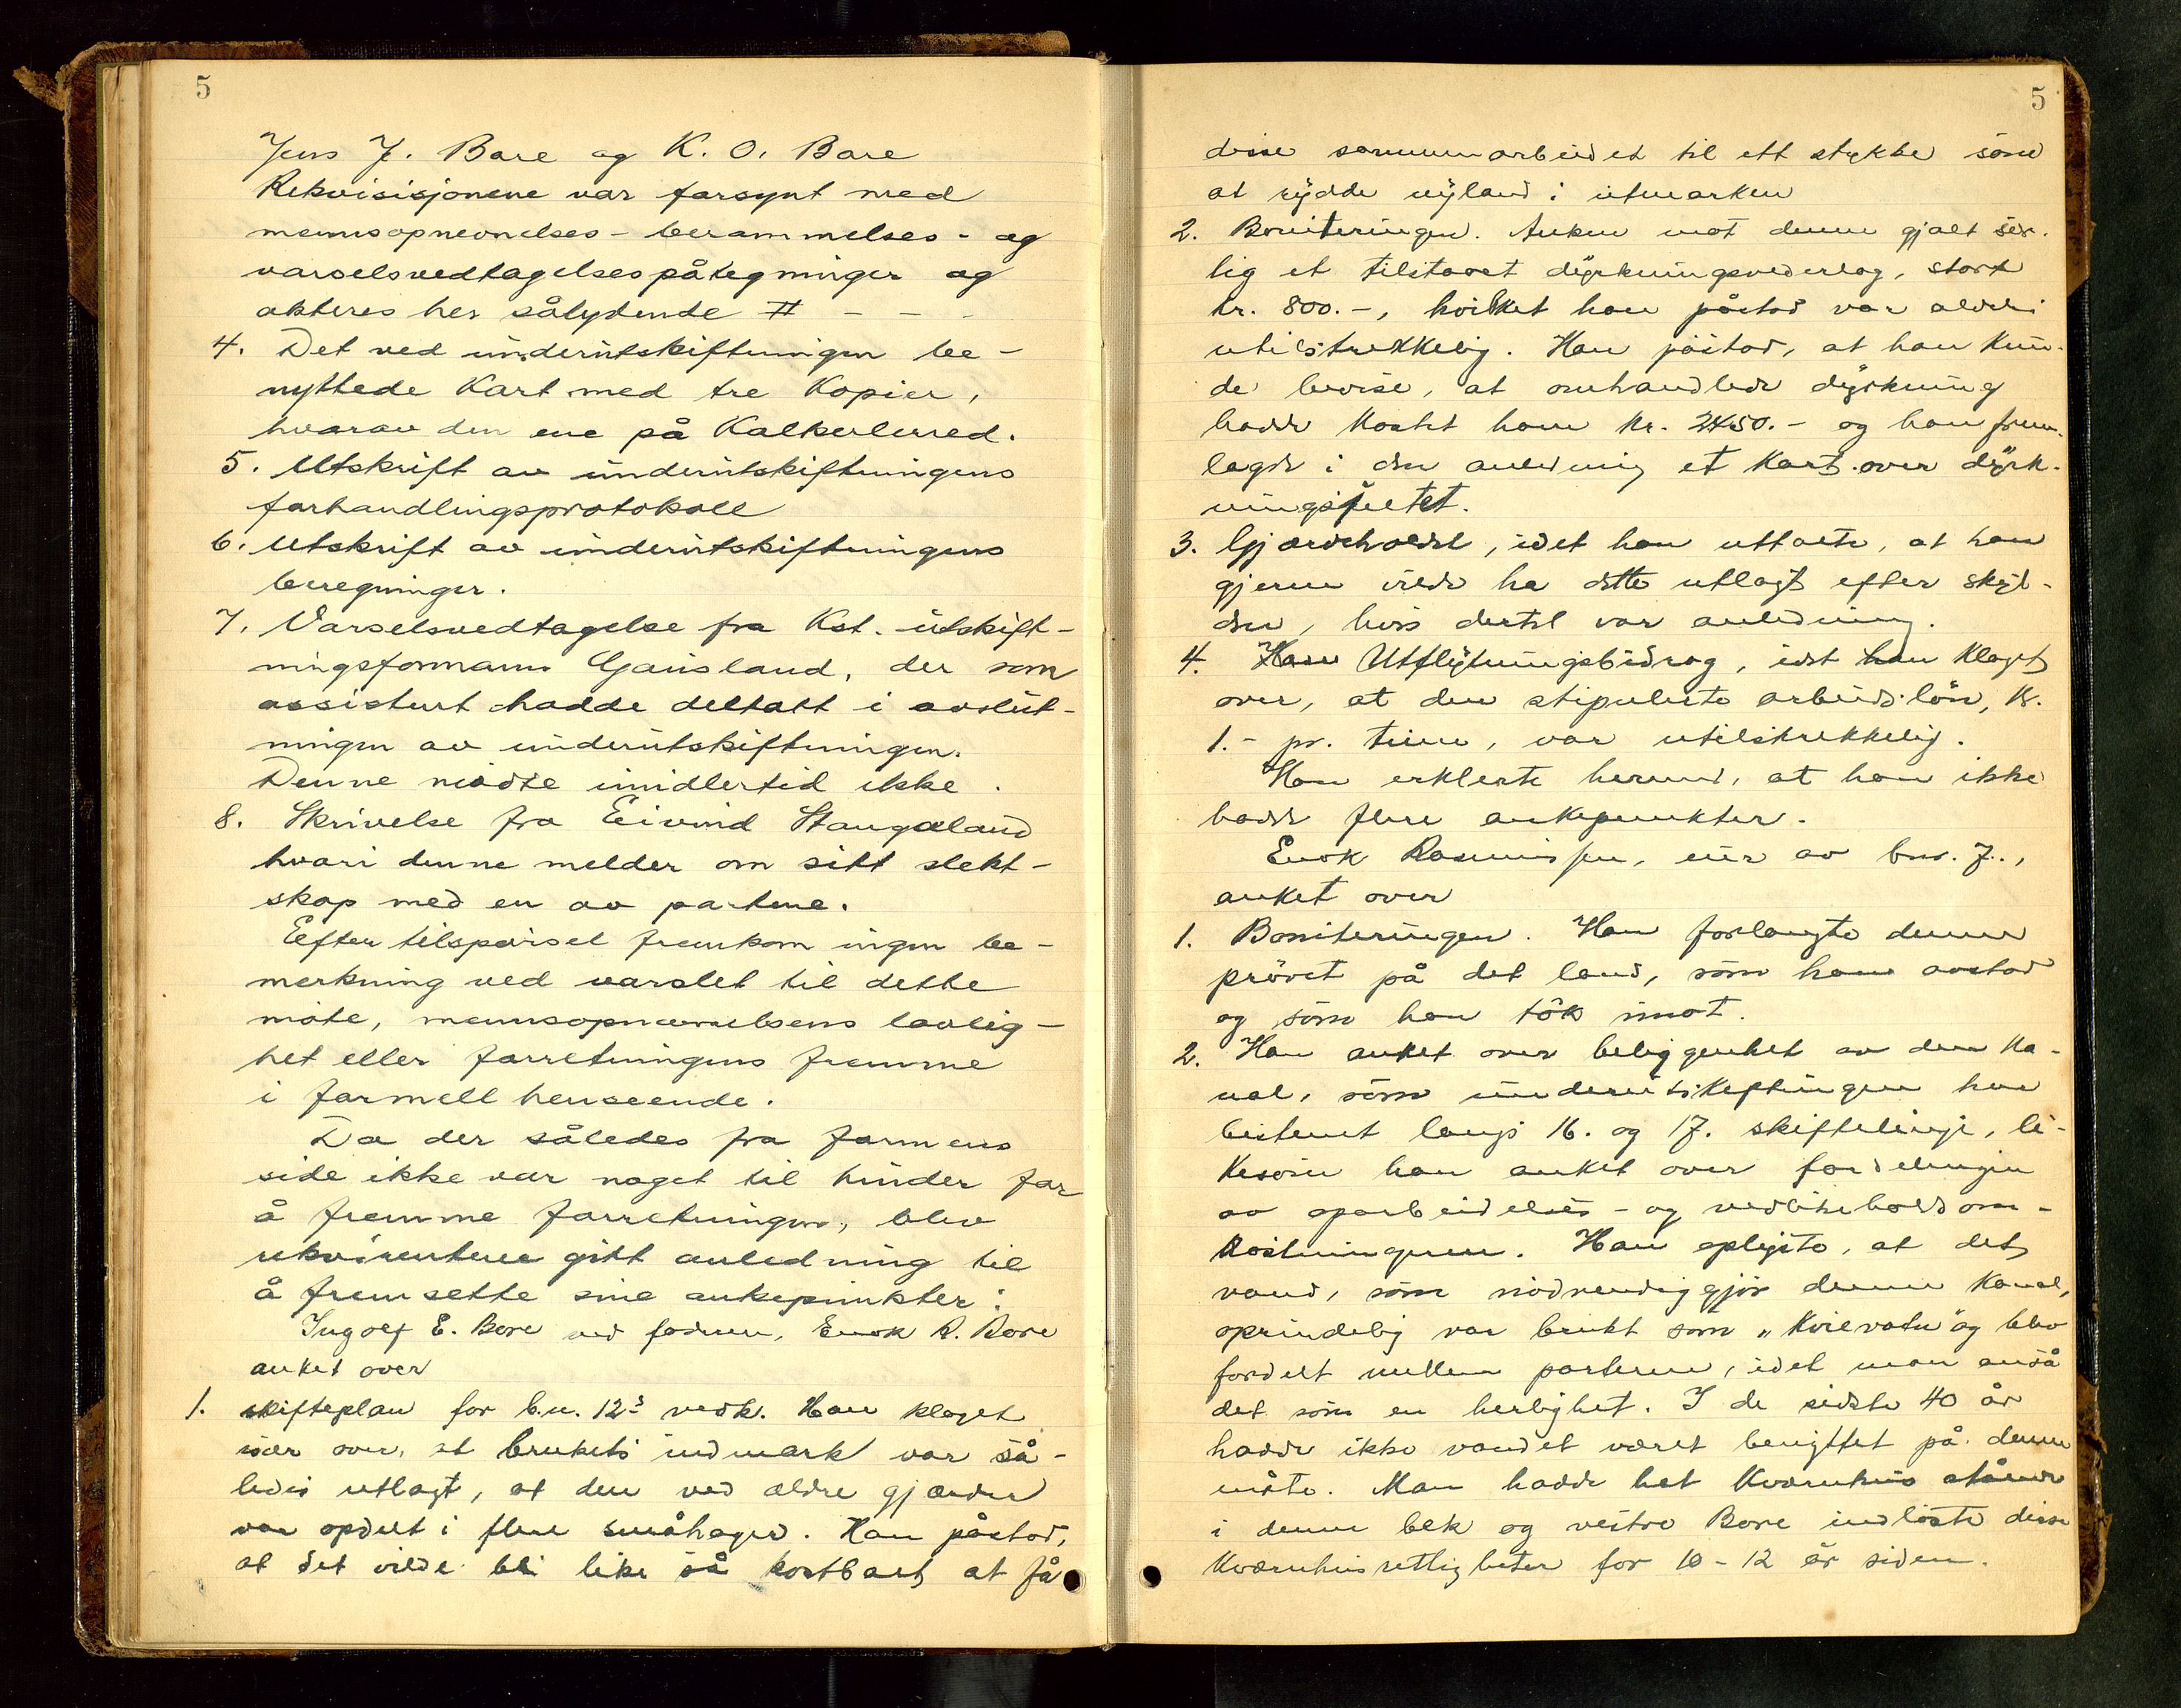 5
Jens J. Bore og K. O. Bore
Rekvisisjonene var forsynt med
mennsopnevnelses- berammelses- og
varselsvedtagelsespåtegninger og
akteres her sålydende # - - -
4. Det ved underutskiftningen be-
nyttede Kart med tre Kopier,
hvorav den ene på Kalkerlerred.
5. Utskrift av underutskiftningens
forhandlingsprotokoll
6. Utskrift av underutskiftningens
beregninger.
7. Varselsvedtagelse fra Kst. utskift-
ningsformann Gausland, der som
assistent hadde deltatt i avslut-
ningen av underutskiftningen.
Denne møtte imidlertid ikke.
8. Skrivelse fra Eivind Stangeland
hvori denne melder om sitt slekt-
skap med en av partene.
Efter tilspørsel fremkom ingen be-
merkning ved varslet til dette
møte, mennsopnevnelsens lovlig-
het eller forretningens fremme
i formell henseende.
Da der således fra formens
side ikke var noget til hinder for
å fremme forretningen, blev
rekvirentene gitt anledning til
å fremsette sine ankepunkter:
Ingolf E. Bore ved faderen, Enok R. Bore
anket over
1. skifteplan for b.n. 12³ vedk. Han klaget
især over, at brukets indmark var så-
ledes utlagt, at den ved ældre gjærder
var opdelt i flere småhager. Han påstod,
at det vilde bli like så kostbart at få
5
disse sammenarbeidet til ett stykke som
at rydde nyland i utmarken
2. Boniteringen. Anken mot denne gjalt sær-
lig et tilstaaet dyrkningsvederlag, stort
kr. 800.-, hvilket han påstod var aldeles
utilstrekkelig. Han påstod, at han kun-
de bevise, at omhandlede dyrkning
hadde kostet ham kr. 2450.- og han frem-
lagde i den anledning et Kart over dyrk-
ningsfeltet.
3. Gjærdeholdet, idet han uttalte, at han
gjerne vilde ha dette utlagt efter skyl-
den, hvis dertil var anledning.
4. Utflytningsbidrag, idet han klaget
over, at den stipulerte arbeidslön, Kr.
1.- pr. time, var utilstrekkelig.
Han erklerte herved, at han ikke
hadde flere ankepunkter.
Enok Rasmussen, eier av bnr. 7.,
anket over
1. Boniteringen. Han forlangte denne
prövet på det land, som han avstod
og som han tok imot.
2. Han anket over beliggenhet av den Ka-
nal, som underutskiftningen har
bestemt langs 16. og 17. skiftelinje, li-
kesom han anket over fordelingen
av oparbeidelses- og vedlikeholdsom-
kostningerne. Han oplyste, at det
vand, som nödvendiggjör denne Kanal,
oprindelig var brukt som „Kvievatn" og blev
fordelt mellem parterne, idet man anså
det som en herlighet. I de sidste 40 år
hadde ikke vandet været benyttet på denne
måte. Man hadde hat Kværnhus stående
i denne bek og vestre Bore indlöste disse
Kværnhusrettigheter for 10-12 år siden.